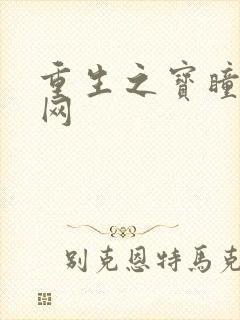 重生之寶瞳
网
别克恩特馬克